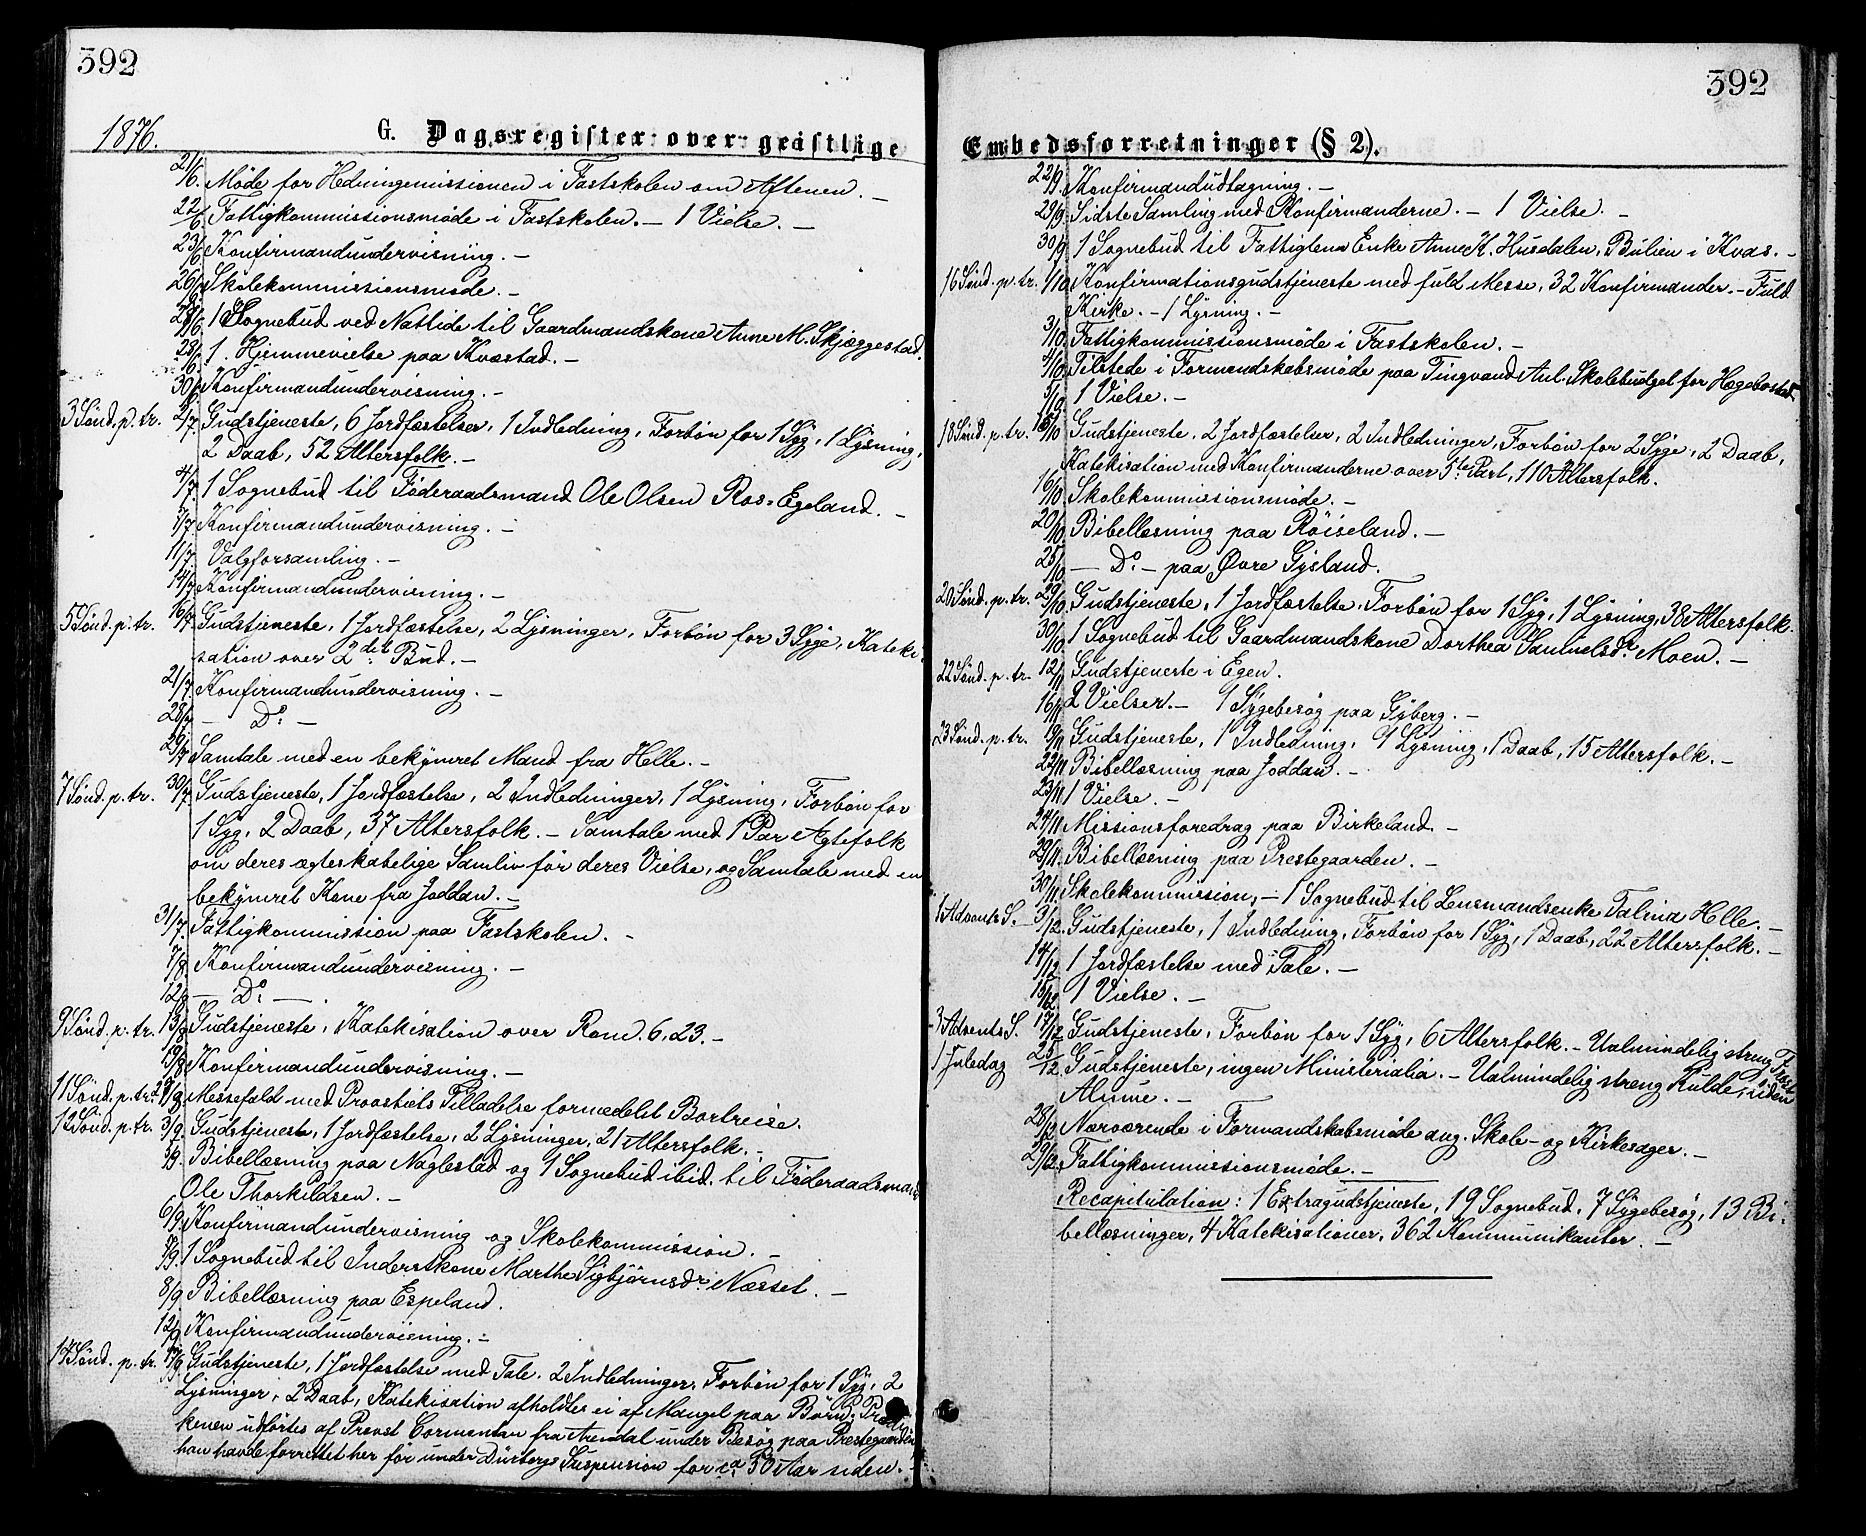 392
1876.
G. Dagsregister over geistlige
21/6. Møde for Hedningemissionen i Fastskolen om Aftenen. –
22/6. Fattigkommissionsmøde i Fastskolen. – 1 Vielse. –
23/6 Konfirmandundervisning. –
26/6 Skolekommissionsmøde. –
1 Sognebud ved Nattide til Gaardmandskone Anne M. Skjæggestad.
28/6. 1 Hjemmevielse paa Kvæstad. –
30/6 Konfirmandundervisning. –
3 Sønd. p. tr. 2/7. Gudstjeneste, 6 Jordfæstelser, 1 Indledning, Forbøn for 1 Syg, 1 Lysning,
2 Daab, 52 Altersfolk. –
4/7. 1 Sognebud til Føderaadsmand Ole Olsen Ros-Egeland. –
5/7. Konfirmandundervisning. –
11/7. Valgforsamling. –
14/7. Konfirmandundervisning. –
5 Sønd. p. tr. 16/7. Gudstjeneste, 1 Jordfæstelse, 2 Lysninger, Forbøn for 3 Syge, Kateki-
sation over 2det Bud. –
21/7. Konfirmandundervisning. –
28/7 – Do –
29/7 Samtale med en bekymret Mand fra Helle. –
7 Sønd. p. tr. 30/7. Gudstjeneste, 1 Jordfæstelse, 2 Indledninger, 1 Lysning, Forbøn for
1 Syg, 2 Daab, 37 Altersfolk. – Samtale med 1 Par Ægtefolk
om deres ægteskabelige Samliv før deres Vielse, og Samtale med en
bekymret Kone fra Joddan. –
31/7. Fattigkommission paa Fastskolen. –
7/8. Konfirmandundervisning. –
12/8 – Do –
9 Sønd. p. tr. 13/8 Gudstjeneste, Katekisation over Rom. 6, 23. –
19/8 Konfirmandundervisning. –
11 Sønd. p. tr. 27/8 Messefald med Provstiets Tilladelse formedelst Bortreise.
12 Sønd. p. tr. 3/9. Gudstjeneste, 1 Jordfæstelse, 2 Lysninger, 21 Altersfolk. –
5/9. Bibellæsning paa Naglestad og 1 Sognebud ibid. til Føderaadsmand
Ole Thorkildsen. –
6/9. Konfirmandundervisning og Skolekommission. –
1 Sognebud til Inderstkone Marthe Sigbjørnsdr. Næsset. –
8/9 Bibellæsning paa Espeland.
12/9 Konfirmandundervisning. –
Sønd. p. tr. Gudstjeneste, 1 Jordfæstelse med Tale. 2 Indledninger. Forbøn for 1 Syg, 2
Lysninger, 2 Daab, Katekisation afholdtes ei af Mangel paa Børn. Prædi-
kenen udførtes af Provst Cormontan fra Arendal under Besøg paa Prestegaarden
han havde forrettet her før under Dürbergs Suspension for ca 30 Aar siden. –
392
Embedsforretninger (§ 2).
22/9. Konfirmandudtagning. –
29/9. Sidste Samling med Konfirmanderne. – 1 Vielse. –
30/9 1 Sognebud til Fattiglem Enke Anne K. Husdalen, Bulien i Kvås. –
16 Sønd. p. tr. 1/10 Konfirmationsgudstjeneste med fuld Messe, 32 Konfirmander. – Fuld
Kirke. – 1 Lysning. –
3/10. Fattigkommissionsmøde i Fastskolen. –
4/10 Tilstede i Formandskabsmøde paa Tingvand Anl. Skolebudget for Hægebostad.
5/10. 1 Vielse. –
18 Sønd. p. tr. 15/10 Gudstjeneste, 2 Jordfæstelser, 2 Indledninger, Forbøn for 2 Syge, 2 Daab,
Katekisation med Konfirmanderne over 5te Part, 110 Altersfolk.
16/10 Skolekommissionsmøde. –
20/10 Bibellæsning paa Røiseland. –
25/10 – Do – paa Øvre Gysland.
20 Sønd. p. tr. 29/10 Gudstjeneste, 1 Jordfæstelse, Forbøn for 1 Syg, 1 Lysning, 38 Altersfolk.
30/10 1 Sognebud til Gaardmandskone Dorthea Samuelsdr. Moen. –
22 Sønd. p. tr. 12/11 Gudstjeneste i Egen.
16/11 2 Vielser. – 1 Sygebesøg paa Gyberg. –
23 Sønd. p. tr. 19/11 Gudstjeneste, 1 Indledning, 1 Lysning, 1 Daab, 15 Altersfolk. –
22/11 Bibellæsning paa Joddan. –
23/11 1 Vielse. –
24/11 Missionsforedrag paa Birkeland. –
29/11. Bibellæsning paa Prestegaarden. –
30/11. Skolekommission, – 1 Sognebud til Lensmandsenke Talina Helle. –
1 Advents S. 3/12. Gudstjeneste, 1 Indledning, Forbøn for 1 Syg, 1 Daab, 22 Altersfolk. –
14/12 1 Jordfæstelse med Tale. –
15/12 1 Vielse. –
3 Advents S. 17/12 Gudstjeneste, Forbøn for 1 Syg, 6 Altersfolk. – Ualmindelig streng Frost
1 Juledag 25/12. Gudstjeneste, ingen Ministerialia. – Ualmindelig streng Kulde, –
Almue. –
28/12 Nærværende i Formandskabsmøde ang. Skole- og Kirkesager. –
29/12 Fattigkommissionsmøde. –
Recapitulation: 1 Extragudstjeneste, 19 Sognebud, 7 Sygebesøg, 13 Bi-
bellæsninger, 4 Katekisationer, 362 Kommunikanter. –